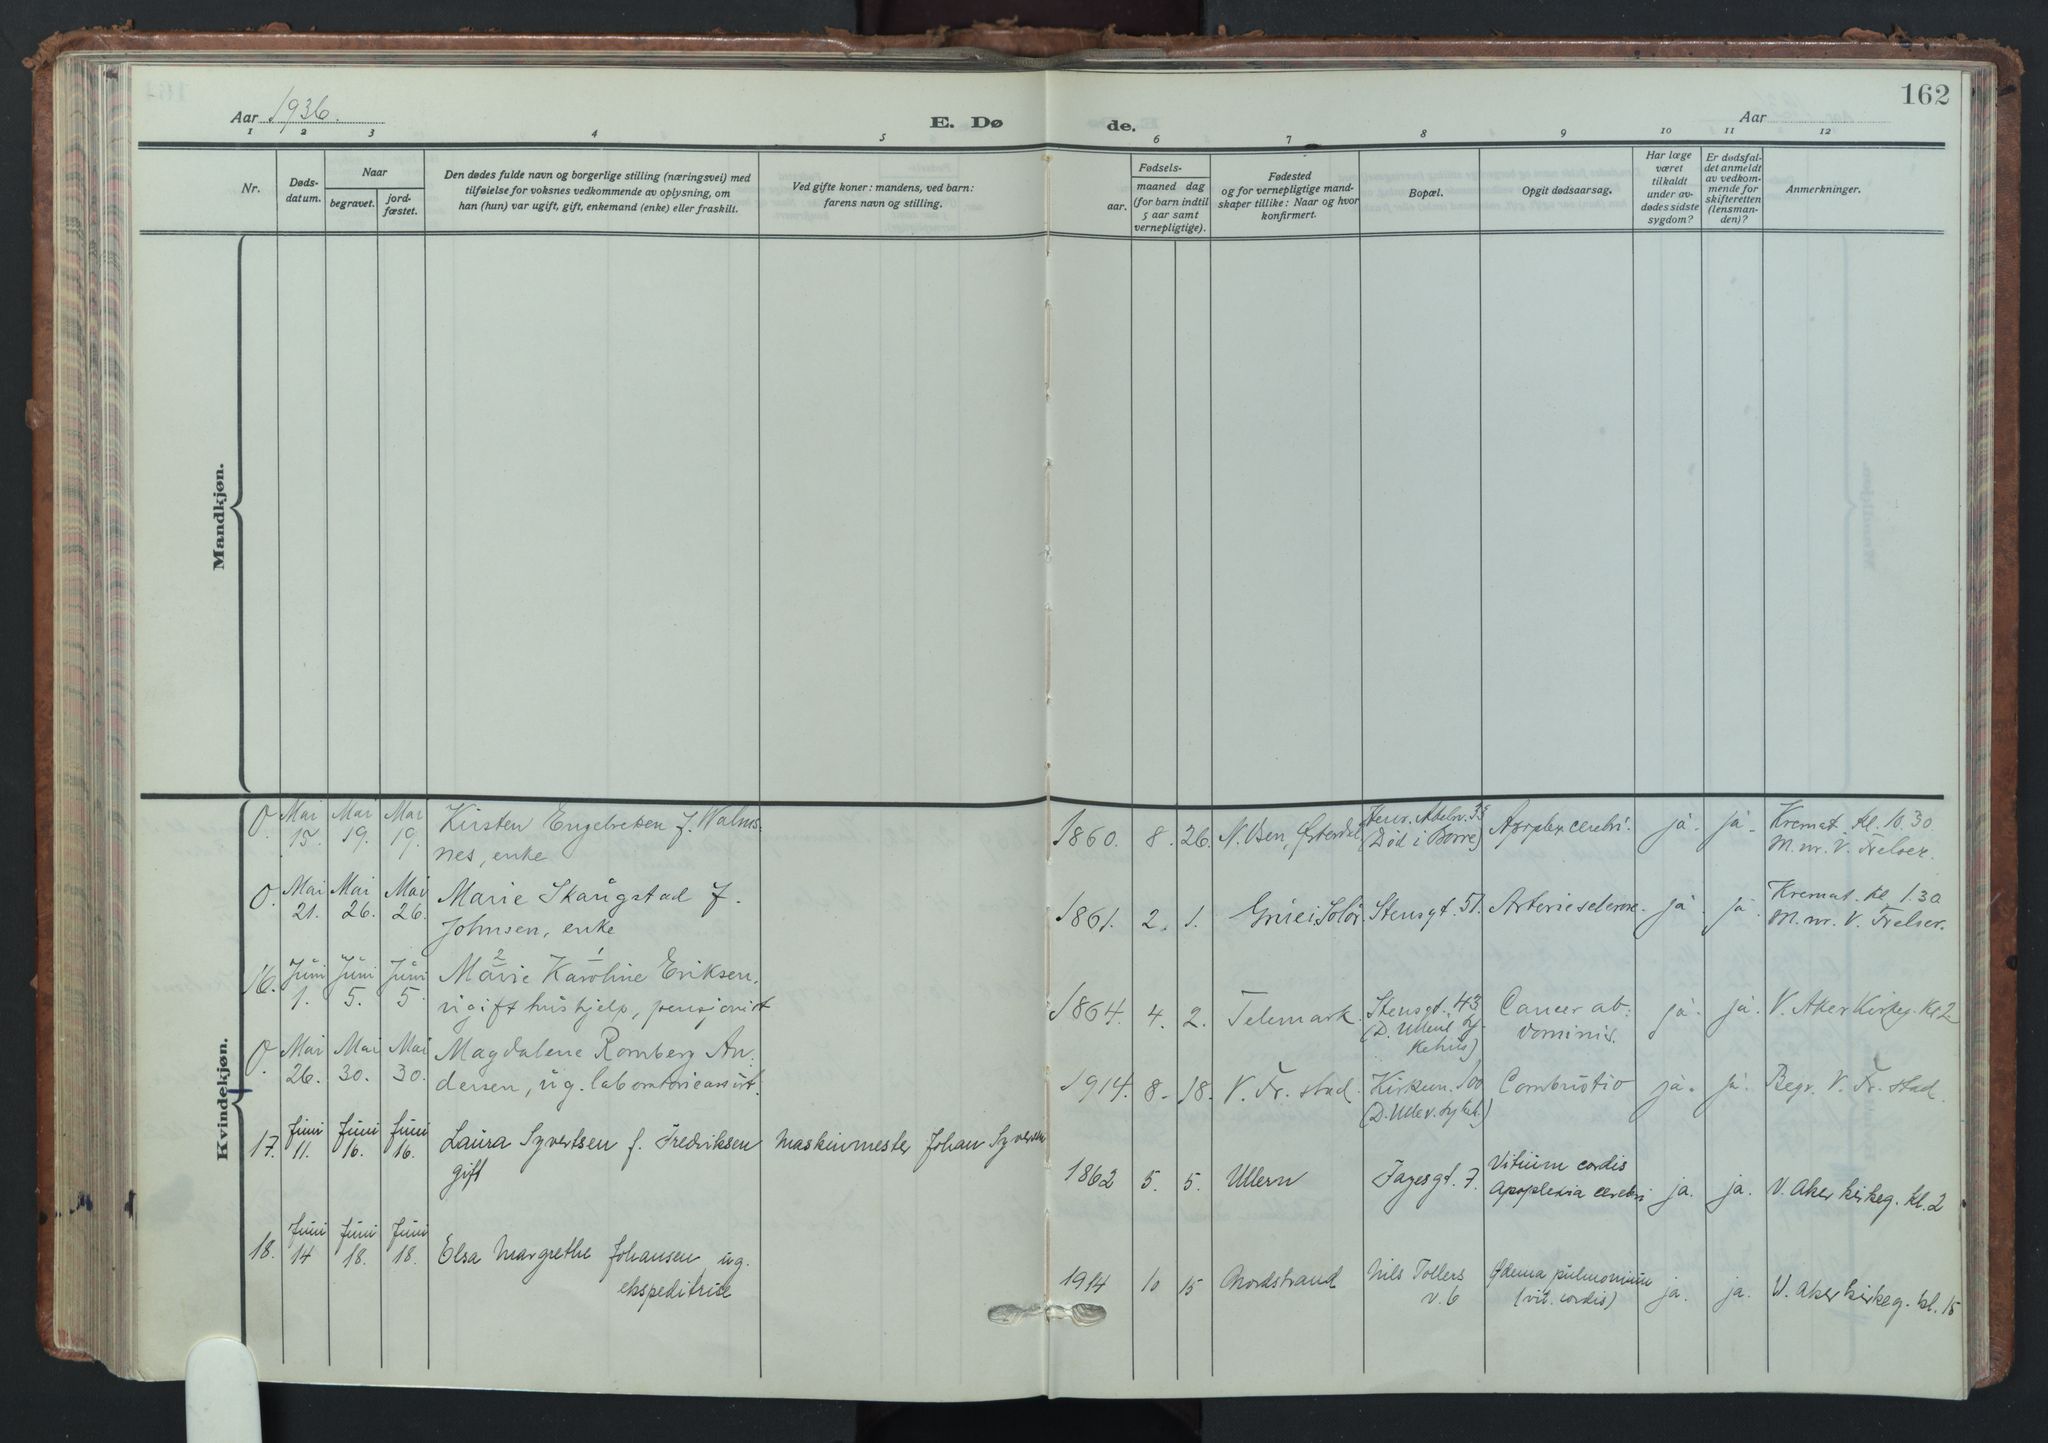 162
Aar 1936.
E. Dø
de.
Aar
1 2 3 4 5 6 7 8 9 10 11 12
Nr.
Døds-
datum.
Naar
begravet.
jord-
fæstet.
Den dødes fulde navn og borgerlige stilling (næringsvei) med
tilføielse for voksnes vedkommende av oplysning, om
han (hun) var ugift, gift, enkemand (enke) eller fraskilt.
Ved gifte koner: mandens, ved barn:
farens navn og stilling.
Fødsels-
aar.
maaned dag
(for barn indtil
5 aar samt
vernepligtige).
Fødested
og for vernepligtige mand-
skaper tillike: Naar og hvor
konfirmert.
Bopæl.
Opgit dødsaarsag.
Har læge
været
tilkaldt
under av-
dødes sidste
sygdom?
Er dødsfal-
det anmeldt
av vedkom-
mende for
skifteretten
(lensman-
den)?
Anmerkninger.
Mandkjøn.
Kvindekjøn.
0. Mai Mai Mai Kirsten Engebretsen f. Walms-
15. 19. 19. nes, enke
1860. 8. 26. N. Osen, Østerdal (Død i Borre) Apoplex. cerebri. ja. ja. Kremat. kl. 10.30
M. nr. V. Frelser.
0. Mai Mai Mai Marie Skaugstad f.
21. 26. 26. Johnsen, enke
1861. 2. 1. Grue i Solør Stensgt. 51. Arteriesclerose. ja. ja. Kremat. kl. 1.30
M. nr. V. Frelser.
2 1
16. Juni Juni Juni Marie Karoline Eriksen,
1. 5. 5. ugift hushjelp, pensjonist
1864. 4. 2. Telemark. Stensgt. 43 Cancer ab-
dominis. ja. ja. V. Aker Kirkeg. Kl 2
(D. Ullevål Sy-
kehus)
0. Mai Mai Mai Magdalene Romberg An-
26. 30. 30. dersen, ug. laboratorieassist.
1914. 8. 18. V. Fr. stad. Kirkevn. 100 Combustio ja. ja. Begr. V. Fr. stad.
(D. Ullev. Sykeh.)
17. Juni Juni Juni Laura Syvertsen f. Fredriksen Maskinmester Johan Syversen
11. 16. 16. gift
1862 5. 5. Ullern Fagesgt. 7. Vitium cordis
Apoplexia cerebri ja. ja. V. Aker kirkeg. kl. 2
18. Juni Juni Juni Elsa Margrethe Johansen, ug.
14 18. 18. ekspeditrise
1914 10 15 Nordstrand Nils Tollers
v. 6 Ødema pulmonium
(vit. cordis) ja. ja. V. Aker kirkeg. kl. 15